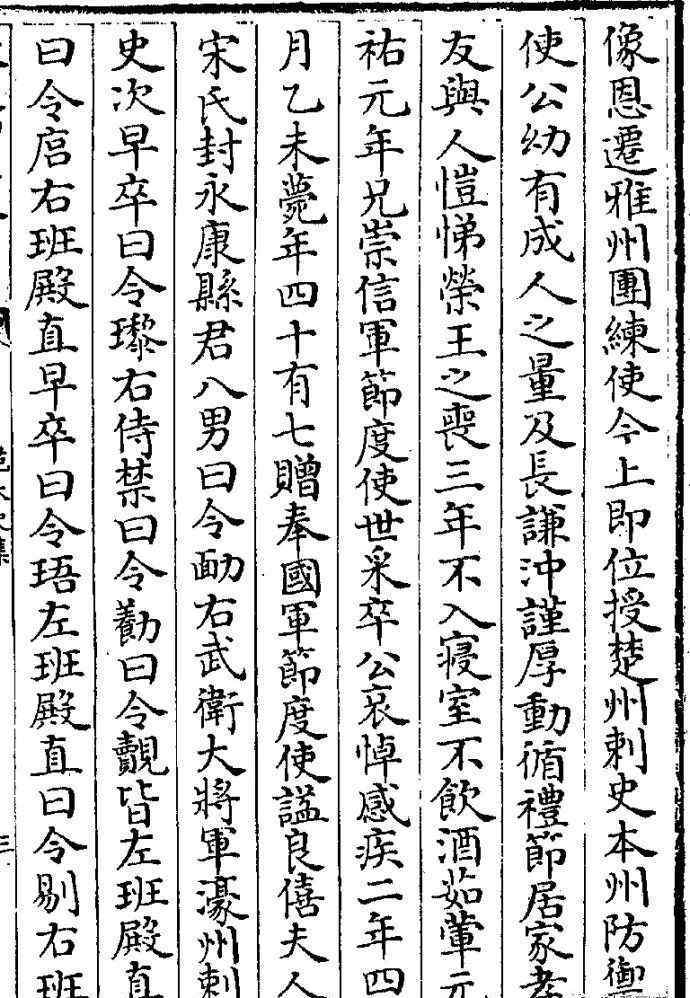 像恩遷雅州團練使今上即位授楚州刺史本州防禦
使公幼有成人之量及長謙沖謹厚動循禮節居家孝
友與人愷悌榮王之喪三年不入寢室不飲酒茹葷元
祐元年兄崇信軍節度使世采卒公哀悼感疾二年四
月乙未薨年四十有七贈奉國軍節度使謚良僖夫人
宋氏封永康縣君八男曰令勔右武衛大將軍濠州刺
史次早卒曰令瓈右侍禁曰令勸曰令覿皆左班殿直
曰令㝓右班殿直早卒曰令珸左班殿直曰令剔右班